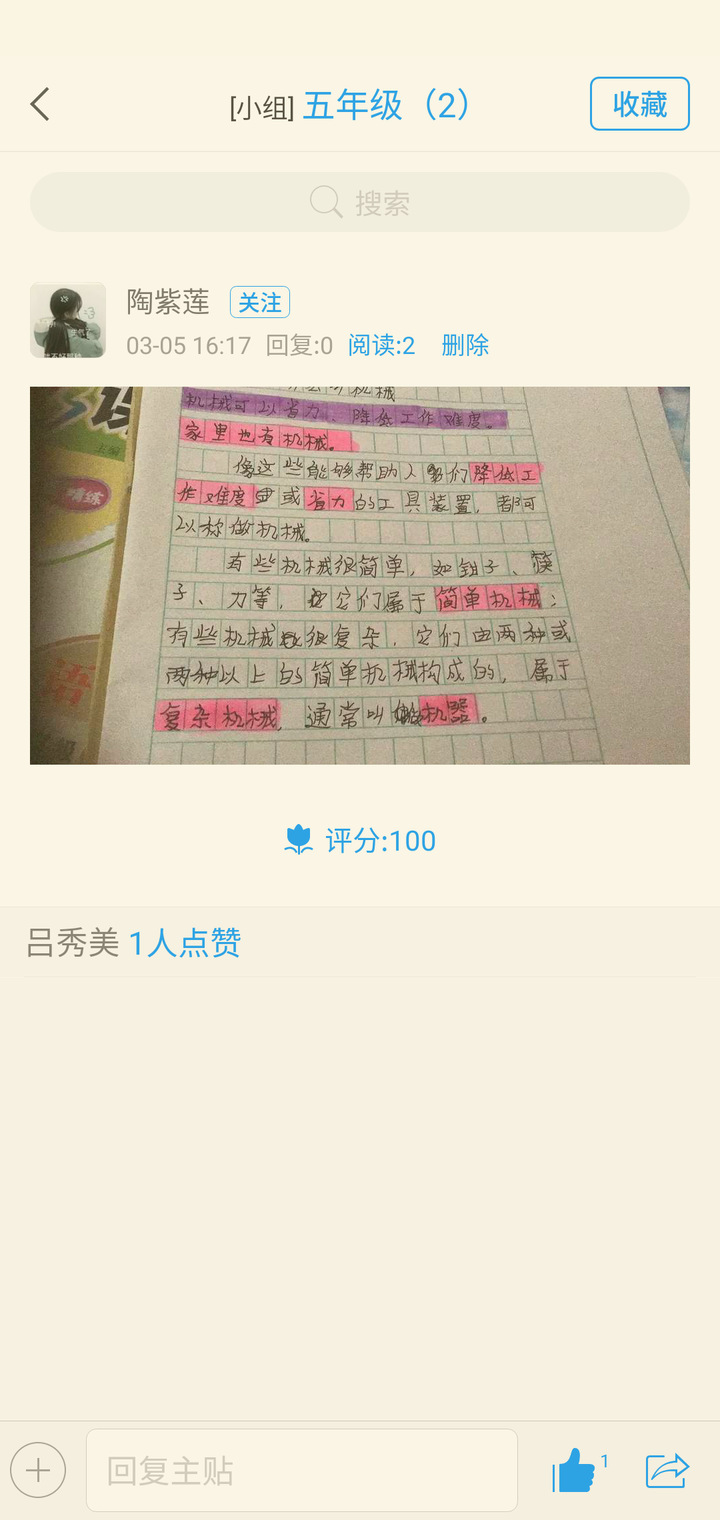 [小组] 五年级（2）
收藏
搜索
陶紫莲 关注
03-05 16:17 回复:0 阅读:2 删除
机械
机械可以省力、降低工作难度。
家里也有机械。
像这些能够帮助人们降低工
作难度或省力的工具装置，都可
以称做机械。
有些机械很简单，如钳子、筷
子、刀等，它们属于简单机械；
有些机械很复杂，它们由两种或
两种以上的简单机械构成的，属于
复杂机械，通常叫做机器。
精练
评分:100
吕秀美 1人点赞
回复主贴
1